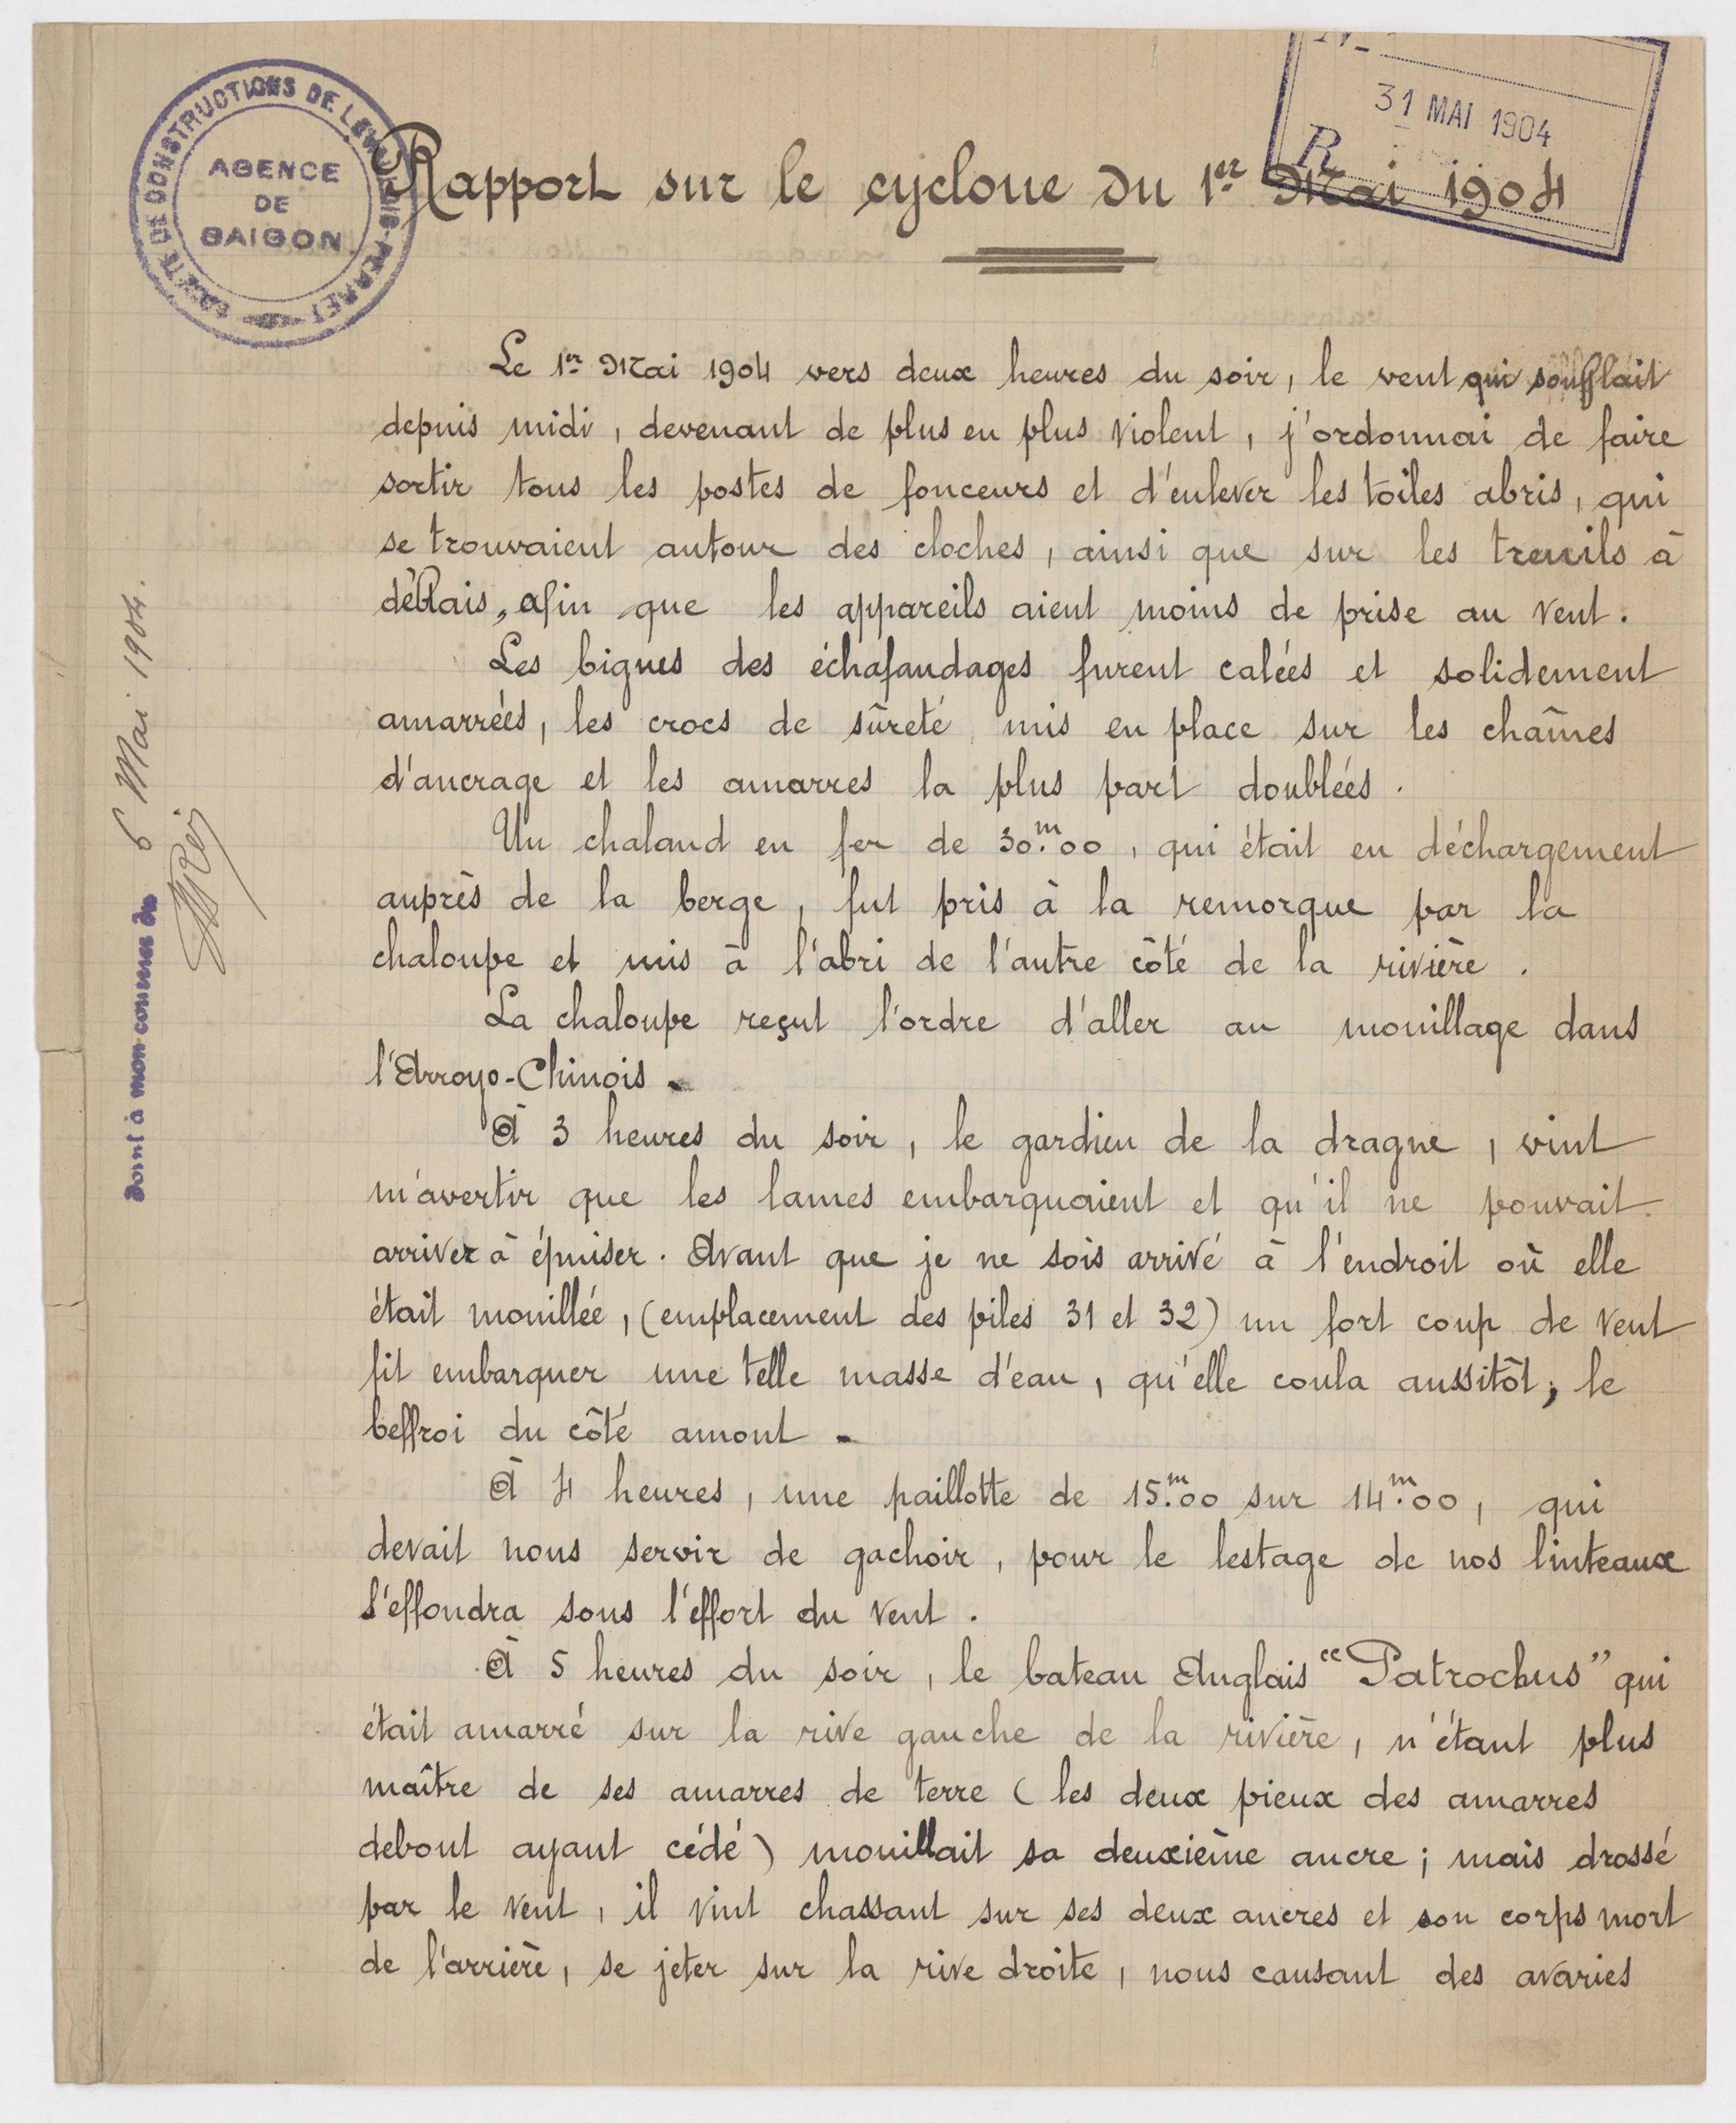 SOCIÉTÉ DE CONSTRUCTIONS DE LEVALLOIS-PERRET
AGENCE
DE
SAIGON
31 MAI 1904
R
Rapport sur le cyclone du 1er Mai 1904
Le 1er Mai 1904 vers deux heures du soir, le vent qui soufflait
depuis midi, devenant de plus en plus violent, j'ordonnai de faire
sortir tous les postes de fonceurs et d'enlever les toiles abris, qui
se trouvaient autour des cloches, ainsi que sur les treuils à
déblais, afin que les appareils aient moins de prise au vent.
Les bigues des échafaudages furent calées et solidement
amarrées, les crocs de sûreté mis en place sur les chaînes
d'ancrage et les amarres la plus part doublées.
Un chaland en fer de 30m.00, qui était en déchargement
auprès de la berge, fut pris à la remorque par la
chaloupe et mis à l'abri de l'autre côté de la rivière.
La chaloupe reçut l'ordre d'aller au mouillage dans
l'Arroyo-Chinois.
À 3 heures du soir, le gardien de la drague, vint
m'avertir que les lames embarquaient et qu'il ne pouvait
arriver à épuiser. Avant que je ne sois arrivé à l'endroit où elle
était mouillée, (emplacement des piles 31 et 32) un fort coup de vent
fit embarquer une telle masse d'eau, qu'elle coula aussitôt; le
beffroi du côté amont.
À 4 heures, une paillotte de 15m.00 sur 14m.00, qui
devait nous servir de gachoir, pour le lestage de nos linteaux
s'effondra sous l'effort du vent.
À 5 heures du soir, le bateau Anglais "Patroclus" qui
était amarré sur la rive gauche de la rivière, n'étant plus
maître de ses amarres de terre (les deux pieux des amarres
debout ayant cédé) mouillait sa deuxième ancre; mais drossé
par le vent, il vint chassant sur ses deux ancres et son corps mort
de l'arrière, se jeter sur la rive droite, nous causant des avaries
Joint à mon courrier du 6 Mai 1904.